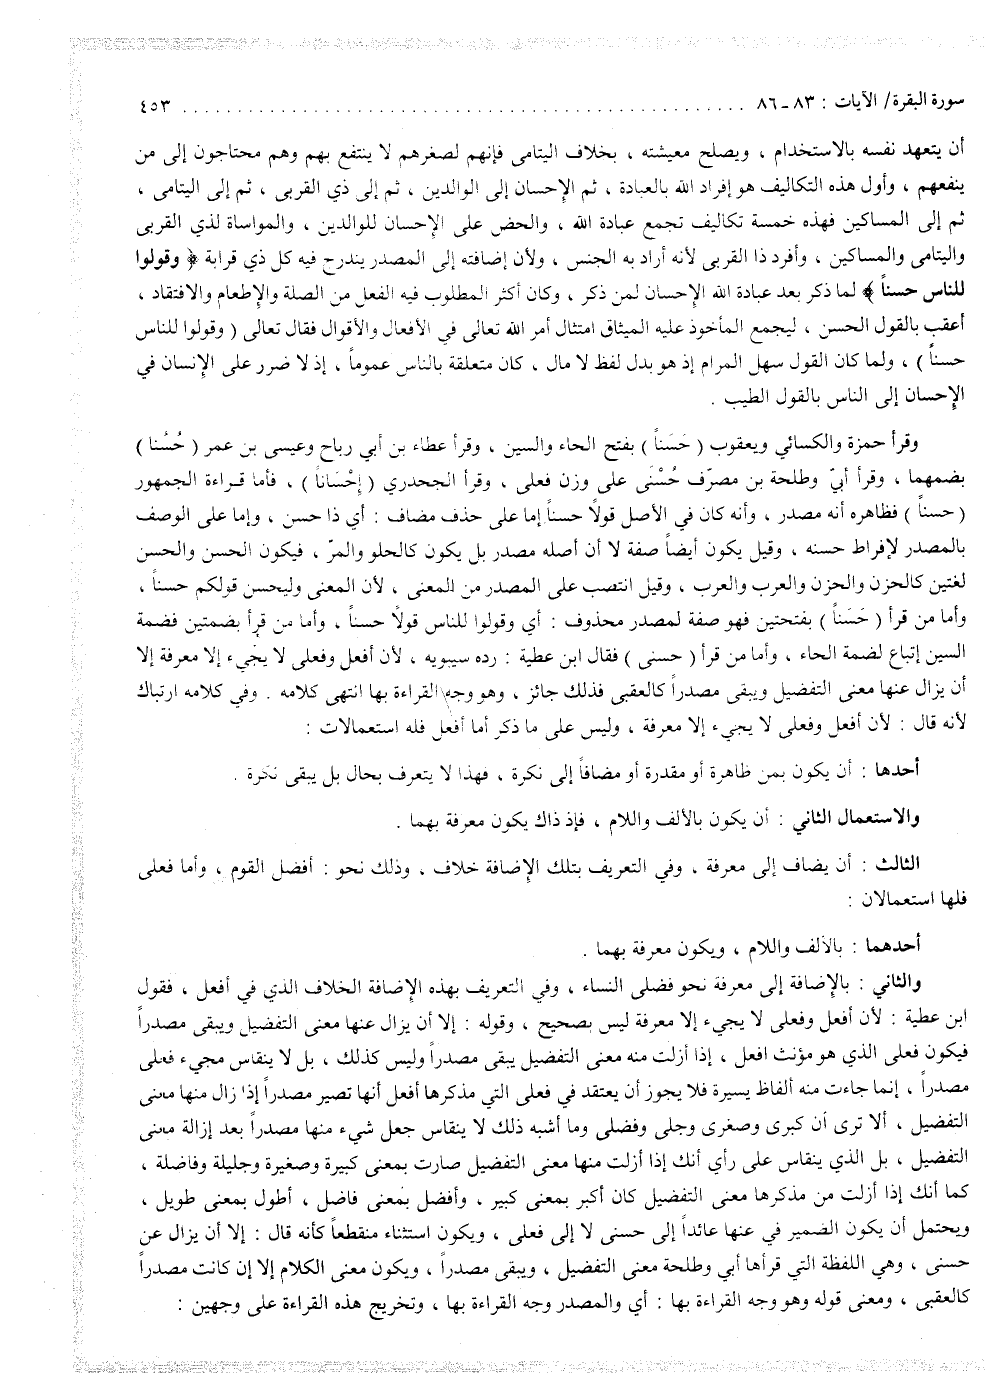 سورة البقرة/ الآيات : ٨٣ - ٨٦ ........................................ ٤٥٣
أن يتعهد نفسه بالاستخدام ، ويصلح معيشته ، بخلاف اليتامى فإنهم لصغرهم لا ينتفع بهم وهم محتاجون إلى من
ينفعهم ، وأول هذه التكاليف هو إفراد الله بالعبادة ، ثم الإحسان إلى الوالدين ، ثم إلى ذي القربى ، ثم إلى اليتامى ،
ثم إلى المساكين فهذه خمسة تكاليف تجمع عبادة الله ، والحض على الإحسان للوالدين ، والمواساة لذي القربى
واليتامى والمساكين ، وأفرد ذا القربى لأنه أراد به الجنس ، ولأن إضافته إلى المصدر يندرج فيه كل ذي قرابة ﴿ وقولوا
للناس حسناً ﴾ لما ذكر بعد عبادة الله الإحسان لمن ذكر ، وكان أكثر المطلوب فيه الفعل من الصلة والإطعام والافتقاد ،
أعقب بالقول الحسن ، ليجمع المأخوذ عليه الميثاق امتثال أمر الله تعالى في الأفعال والأقوال فقال تعالى ( وقولوا للناس
حسناً ) ، ولما كان القول سهل المرام إذ هو بدل لفظ لا مال ، كان متعلقة بالناس عموماً ، إذ لا ضرر على الإنسان في
الإحسان إلى الناس بالقول الطيب .
وقرأ حمزة والكسائي ويعقوب ( حَسَناً ) بفتح الحاء والسين ، وقرأ عطاء بن أبي رباح وعيسى بن عمر ( حُسُنا )
بضمهما ، وقرأ أبيّ وطلحة بن مصرّف حُسْنَى على وزن فعلى ، وقرأ الجحدري ( إحْسَاناً ) ، فأما قراءة الجمهور
( حسناً ) فظاهره أنه مصدر ، وأنه كان في الأصل قولًا حسناً إما على حذف مضاف : أي ذا حسن ، وإما على الوصف
بالمصدر لإفراط حسنه ، وقيل يكون أيضاً صفة لا أن أصله مصدر بل يكون كالحلو والمرّ ، فيكون الحسن والحسن
لغتين كالحزن والحزن والعرب والعرب ، وقيل انتصب على المصدر من المعنى ، لأن المعنى وليحسن قولكم حسناً ،
وأما من قرأ ( حَسَناً ) بفتحتين فهو صفة لمصدر محذوف : أي وقولوا للناس قولًا حسناً ، وأما من قرأ بضمتين فضمة
السين إتباع لضمة الحاء ، وأما من قرأ ( حسنى ) فقال ابن عطية : رده سيبويه ، لأن أفعل وفعلى لا يجيء إلا معرفة إلا
أن يزال عنها معنى التفضيل ويبقى مصدراً كالعقبى فذلك جائز ، وهو وجه القراءة بها انتهى كلامه . وفي كلامه ارتباك
لأنه قال : لأن أفعل وفعلى لا يجيء إلا معرفة ، وليس على ما ذكر أما أفعل فله استعمالات :
أحدها : أن يكون بمن ظاهرة أو مقدرة أو مضافاً إلى نكرة ، فهذا لا يتعرف بحال بل يبقى نكرة .
والاستعمال الثاني : أن يكون بالألف واللام ، فإذ ذاك يكون معرفة بهما .
الثالث : أن يضاف إلى معرفة ، وفي التعريف بتلك الإضافة خلاف ، وذلك نحو : أفضل القوم ، وأما فعلى
فلها استعمالان :
أحدهما : بالألف واللام ، ويكون معرفة بهما .
والثاني : بالإضافة إلى معرفة نحو فضلى النساء ، وفي التعريف بهذه الإضافة الخلاف الذي في أفعل ، فقول
ابن عطية : لأن أفعل وفعلى لا يجيء إلا معرفة ليس بصحيح ، وقوله : إلا أن يزال عنها معنى التفضيل ويبقى مصدراً
فيكون فعلى الذي هو مؤنث افعل ، إذا أزلت منه معنى التفضيل يبقى مصدراً وليس كذلك ، بل لا ينقاس مجيء فعلى
مصدراً ، إنما جاءت منه ألفاظ يسيرة فلا يجوز أن يعتقد في فعلى التي مذكرها أفعل أنها تصير مصدراً إذا زال منها معنى
التفضيل ، ألا ترى أن كبرى وصغرى وجلى وفضلى وما أشبه ذلك لا ينقاس جعل شيء منها مصدراً بعد إزالة معنى
التفضيل ، بل الذي ينقاس على رأي أنك إذا أزلت منها معنى التفضيل صارت بمعنى كبيرة وصغيرة وجليلة وفاضلة ،
كما أنك إذا أزلت من مذكرها معنى التفضيل كان أكبر بمعنى كبير ، وأفضل بمعنى فاضل ، أطول بمعنى طويل ،
ويحتمل أن يكون الضمير في عنها عائداً إلى حسنى لا إلى فعلى ، ويكون استثناء منقطعاً كأنه قال : إلا أن يزال عن
حسنى ، وهي اللفظة التي قرأها أبي وطلحة معنى التفضيل ، ويبقى مصدراً ، ويكون معنى الكلام إلا إن كانت مصدراً
كالعقبى ، ومعنى قوله وهو وجه القراءة بها : أي والمصدر وجه القراءة بها ، وتخريج هذه القراءة على وجهين :